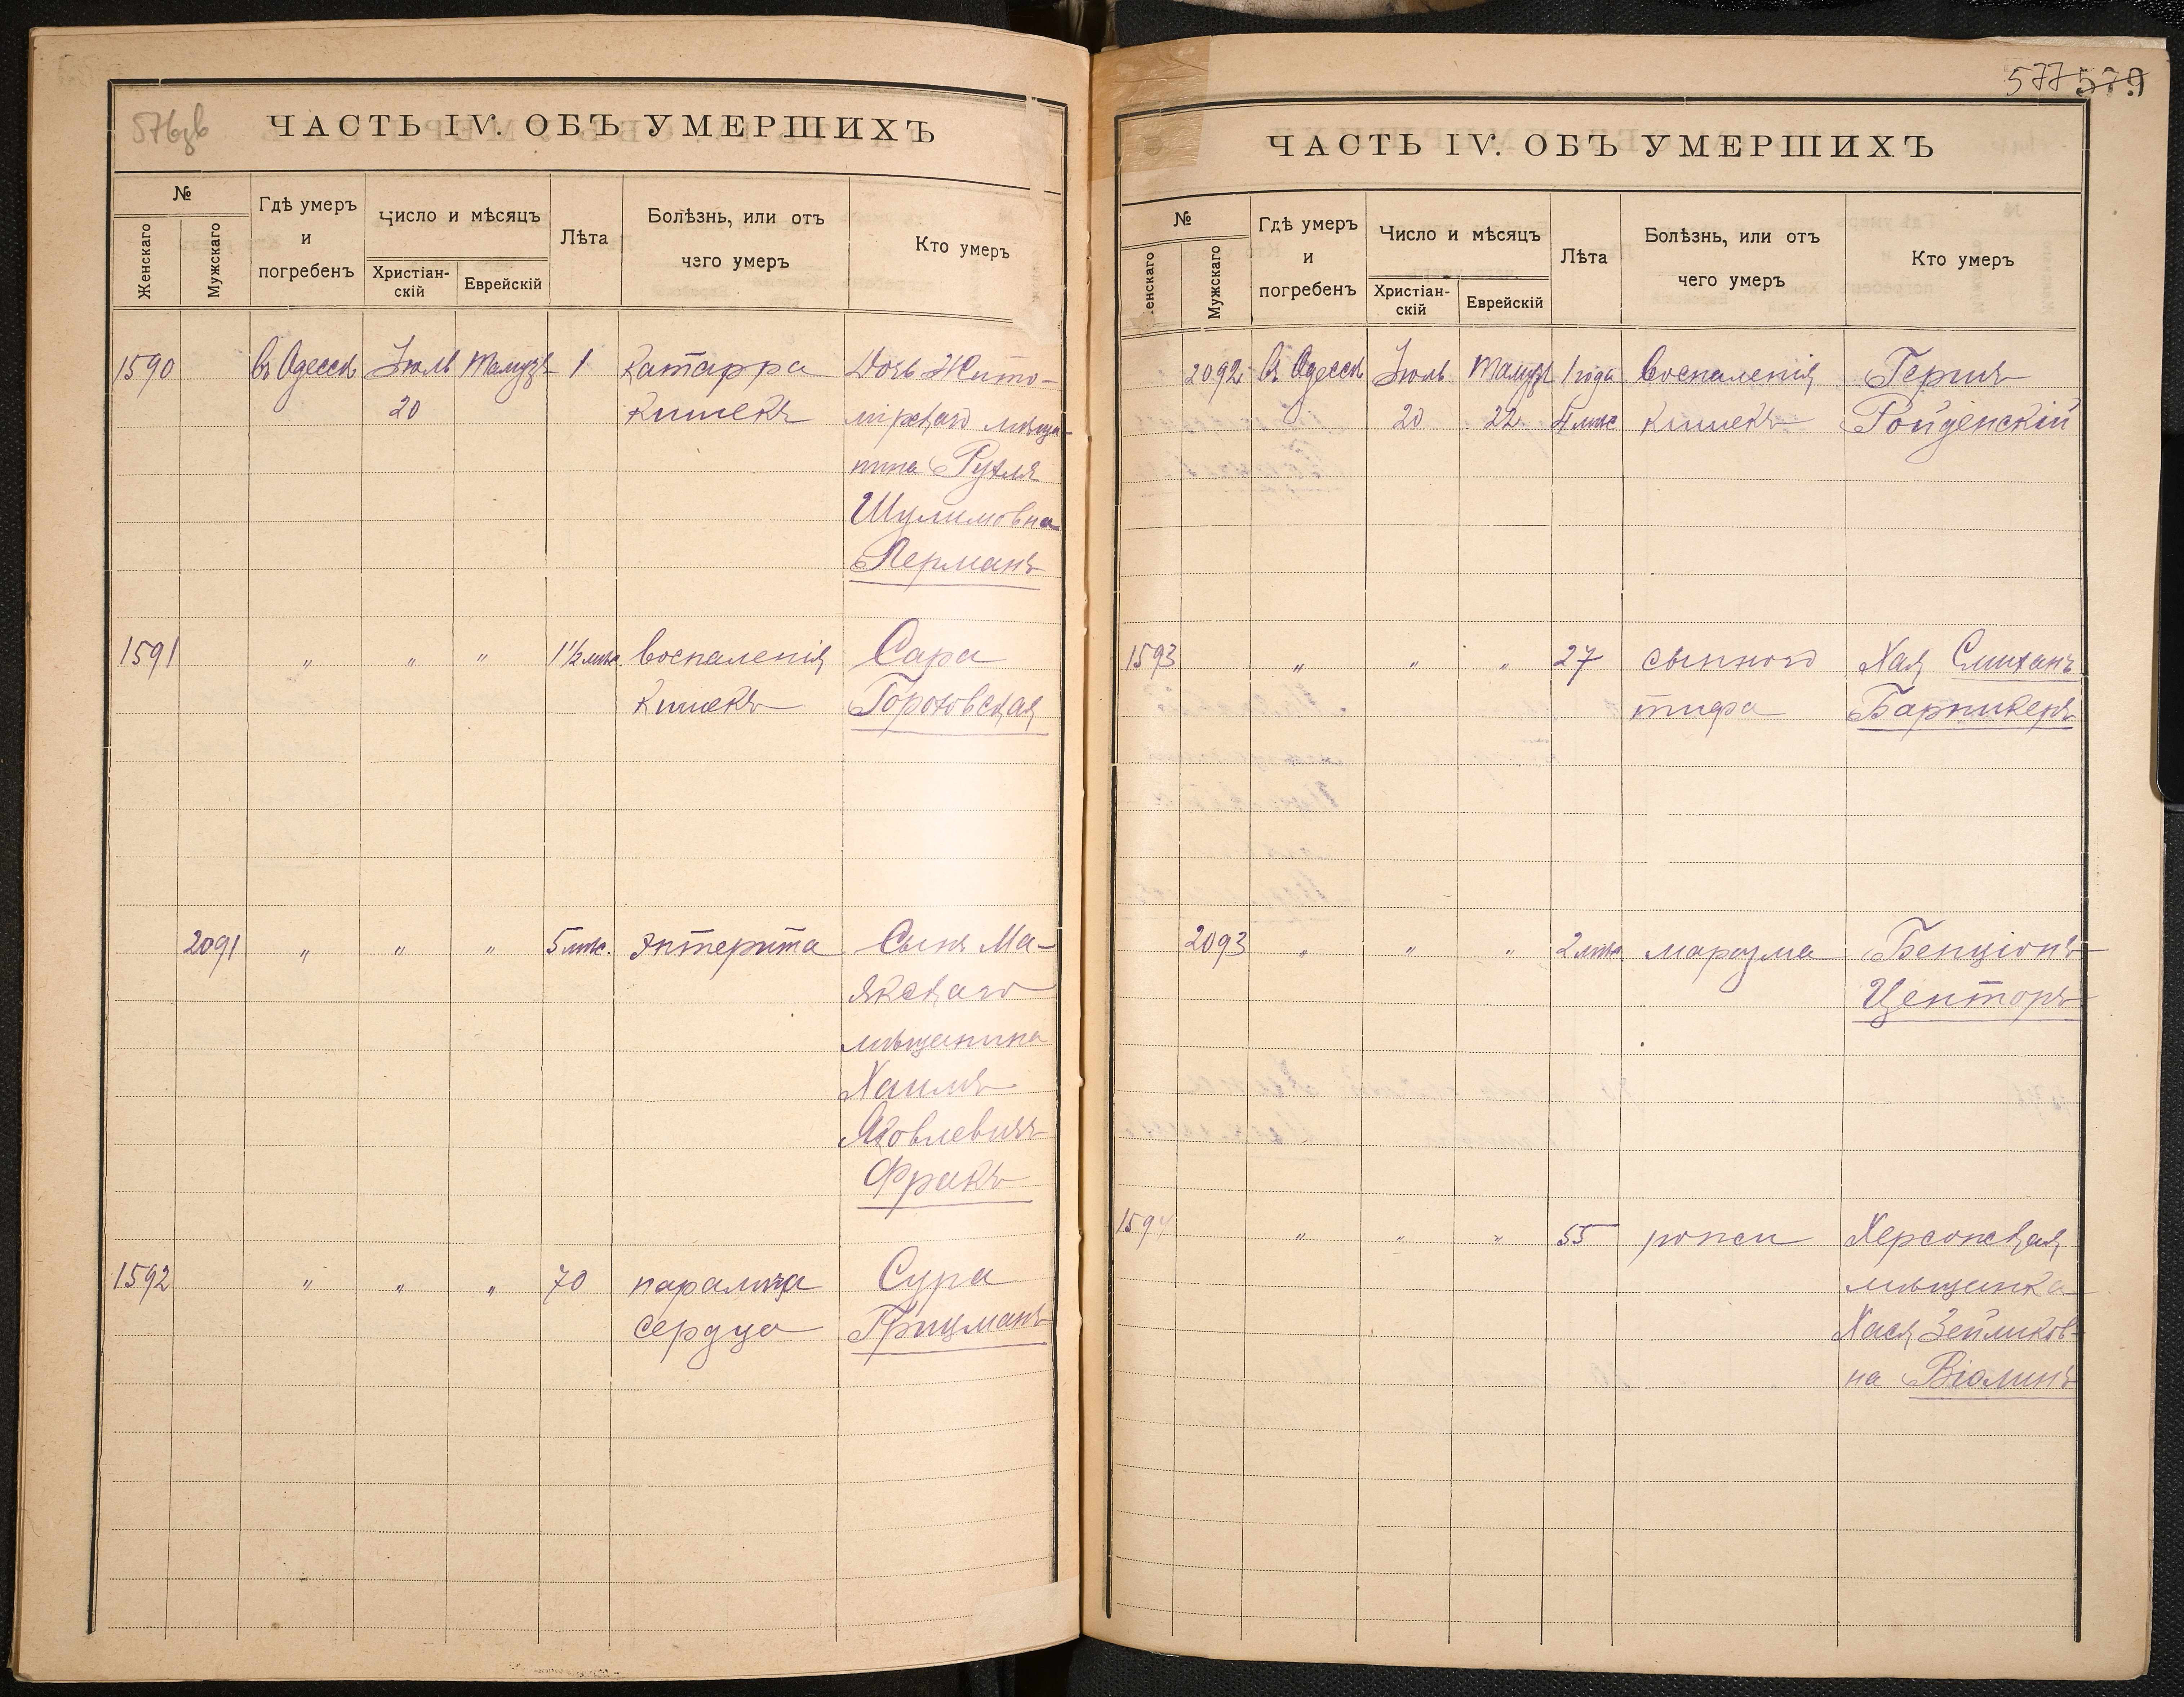 576зв
ЧАСТЬ IV. ОБЪ УМЕРШИХЪ
№
Женскаго
Мужскаго
Гдѣ умеръ
и
погребенъ
Число и мѣсяцъ
Христіан-
скій
Еврейскій
Лѣта
Болѣзнь, или отъ
чего умеръ
Кто умеръ
1590 въ Одессѣ Іюль Тамузъ 1 Катарра Дочь Жито-
20 кишекъ мірскаго мѣща-
нина Рухля
Шулимовна
Лерманъ
1591 " " " 1½ мѣс. воспаленія Сара
кишекъ Гороховская
2091 " " " 5 мѣс. энтерита Сынъ Ма-
якскаго
мѣщанина
Хаимъ
Яковлевичъ
Фракъ
1592 " " " 70 паралича Сура
сердца Грицманъ
577 579
ЧАСТЬ IV. ОБЪ УМЕРШИХЪ
№
енскаго
Мужскаго
Гдѣ умеръ
и
погребенъ
Число и мѣсяцъ
Христіан-
скій
Еврейскій
Лѣта
Болѣзнь, или отъ
чего умеръ
Кто умеръ
2092 въ Одессѣ Іюль Тамузъ 1 года воспаленія Гершъ
20 22 4 мѣс кишекъ Ройденскій
1593 " " " 27 сыпного Хая
тифа Барникеръ
2093 " " " 2 мѣс. маразма Бенціонъ
Центоръ
1594 " " " 55 Херсонская
мѣщанка
Хася Зейликов-
на Віолинъ